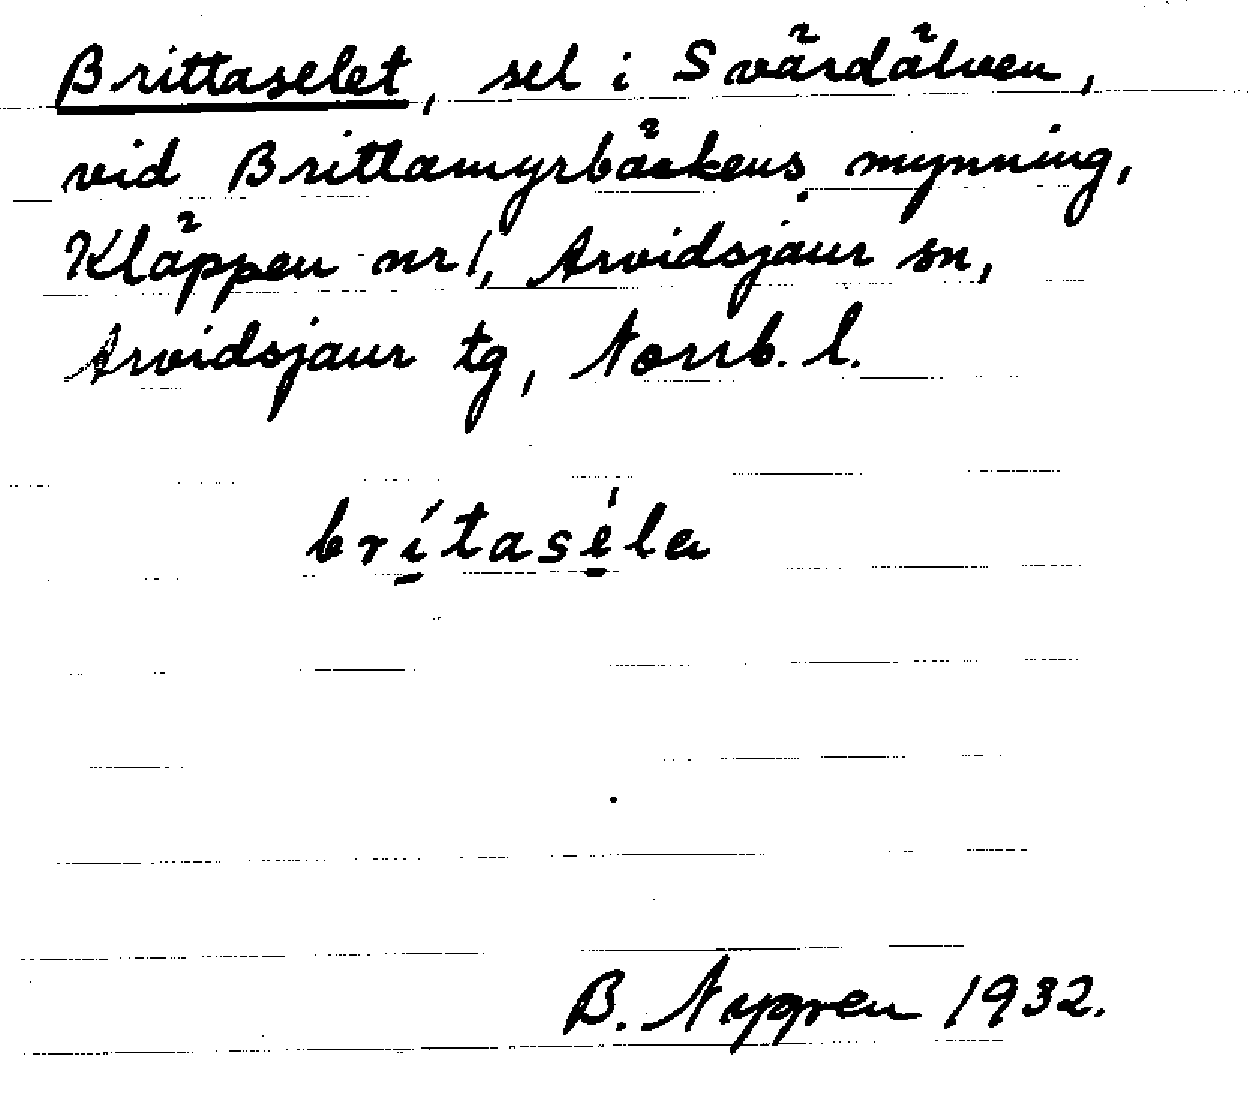 Brittaselet, sel i Svärdälven,
vid Brittamyrbäckens mynning,
Kläppen nr 1, Arvidsjaur sn,
Arvidsjaur tg, Norrb. l.
brı̲́tasé̲la
B. Nygren 1932.